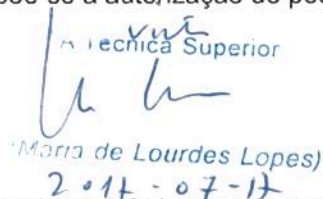 A Técnica Superior
(Maria de Lourdes Lopes)
2017-07-17